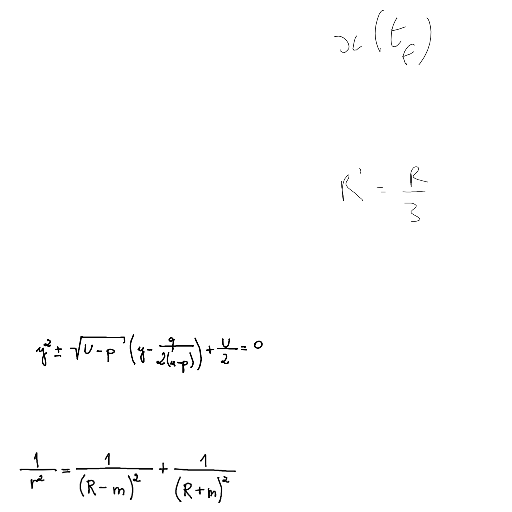 x(t_f)
R' = R/3
y² ± √(U-p) (y - q/2(u-p)) + U/2 = 0
1/r² = 1/(R-m)² + 1/(R+m)²